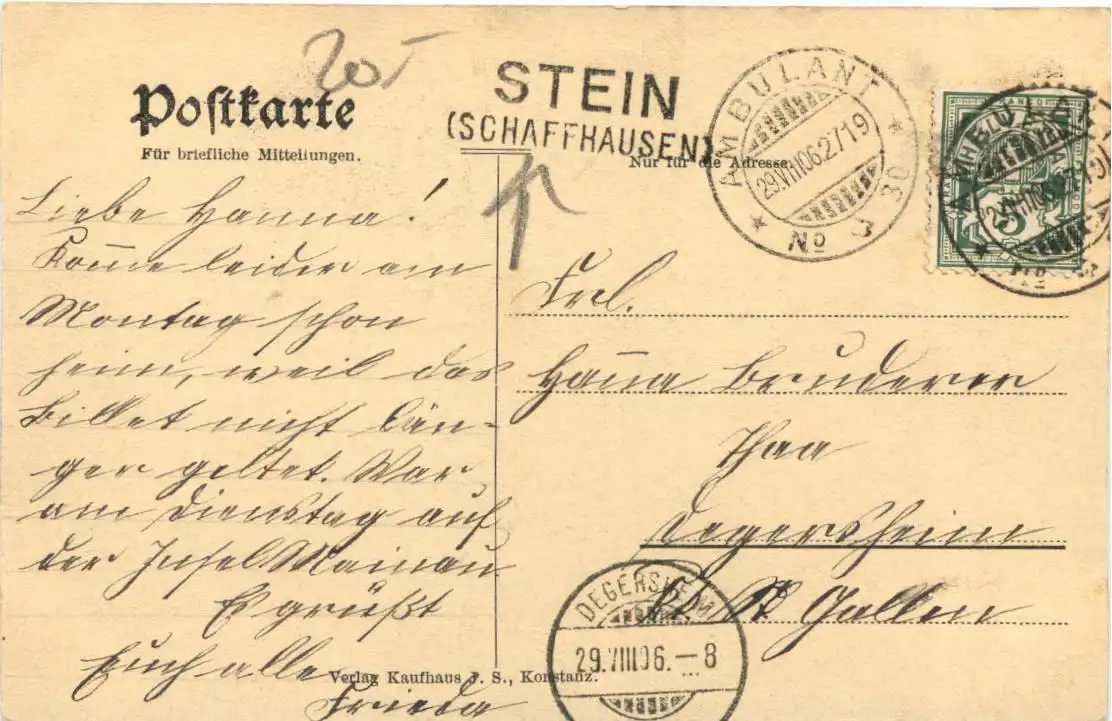 20.-
Postkarte
Für briefliche Mitteilungen.
STEIN
(SCHAFFHAUSEN)
Nur für die Adresse.
AMBULANT
29.VIII06.2719
No 9 * 30 *
5
Liebe Hanna!
Kom̅e leider am
Montag schon
heim, weil das
Billet nicht län-
ger geltet. War
am Dienstag auf
der Insel Mainau.
Es grüßt
Euch alle
Frieda
Frl.
Han̅a Bruderer
Thaa
Degersheim
St Gallen
DEGERSHEIM
29.VIII06.-8
Verlag Kaufhaus J. S., Konstanz.